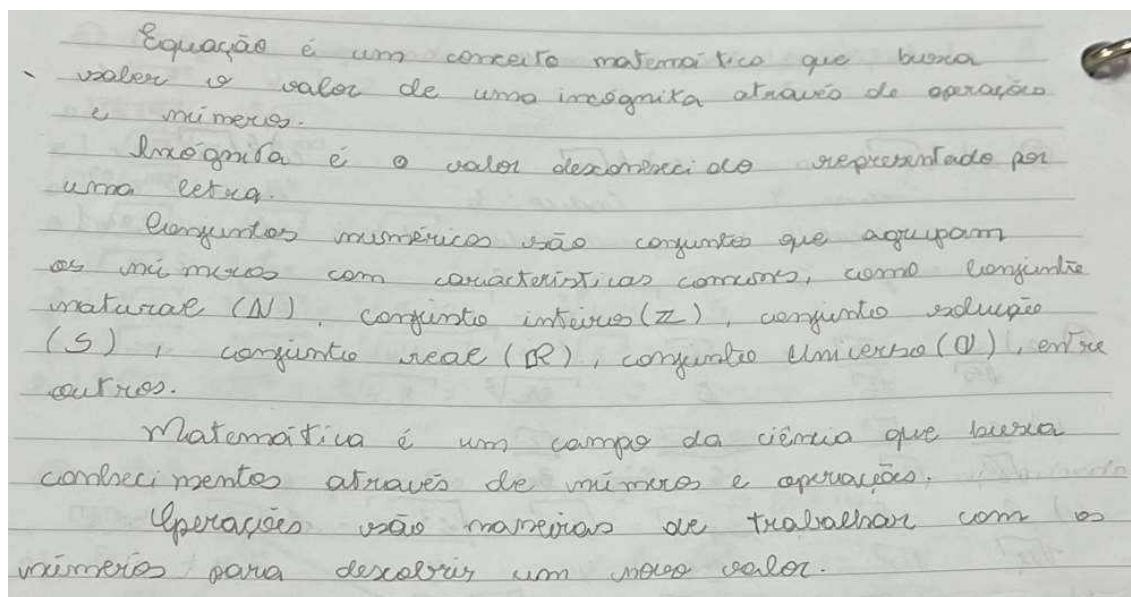 Equação é um conceito matemático que busca
saber o valor de uma incógnita através de operações
e números.
Incógnita é o valor desconhecido representado por
uma letra.
Conjuntos numéricos são conjuntos que agrupam
os números com características comuns, como conjunto
natural (N), conjunto inteiros (Z), conjunto solução
(S), conjunto real (R), conjunto Universo (U), entre
outros.
Matemática é um campo da ciência que busca
conhecimentos através de números e operações.
Operações são maneiras de trabalhar com os
números para descobrir um novo valor.